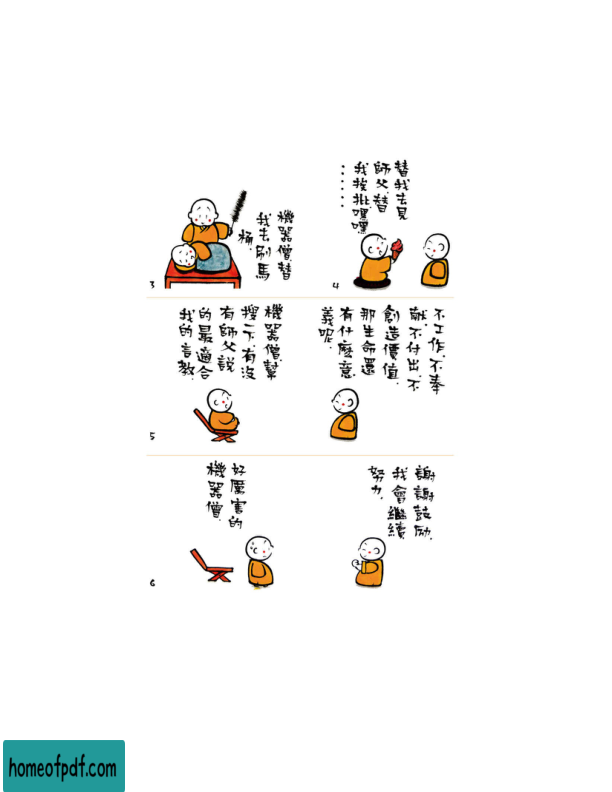 機器僧.替
我去刷馬
桶.
3
替我去見
師父.替
我挨批.嘿嘿
.....
4
機器僧.幫
搜一下.有沒
有師父說
的最適合
我的言教.
5
不工作.不奉
獻.不付出.不
創造價值.
那生命還
有什麼意
義呢.
好厲害的
機器僧.
6
謝謝鼓励.
我會繼續
努力.
homeofpdf.com